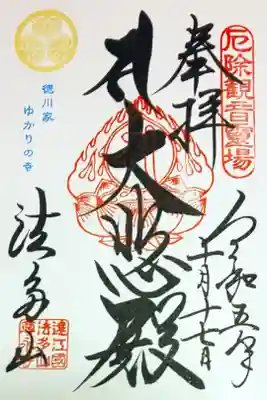 厄除観音霊場
奉拝
令和五年
十月十七日
大悲殿
徳川家
ゆかりの寺
法多山
遠江國
法多山